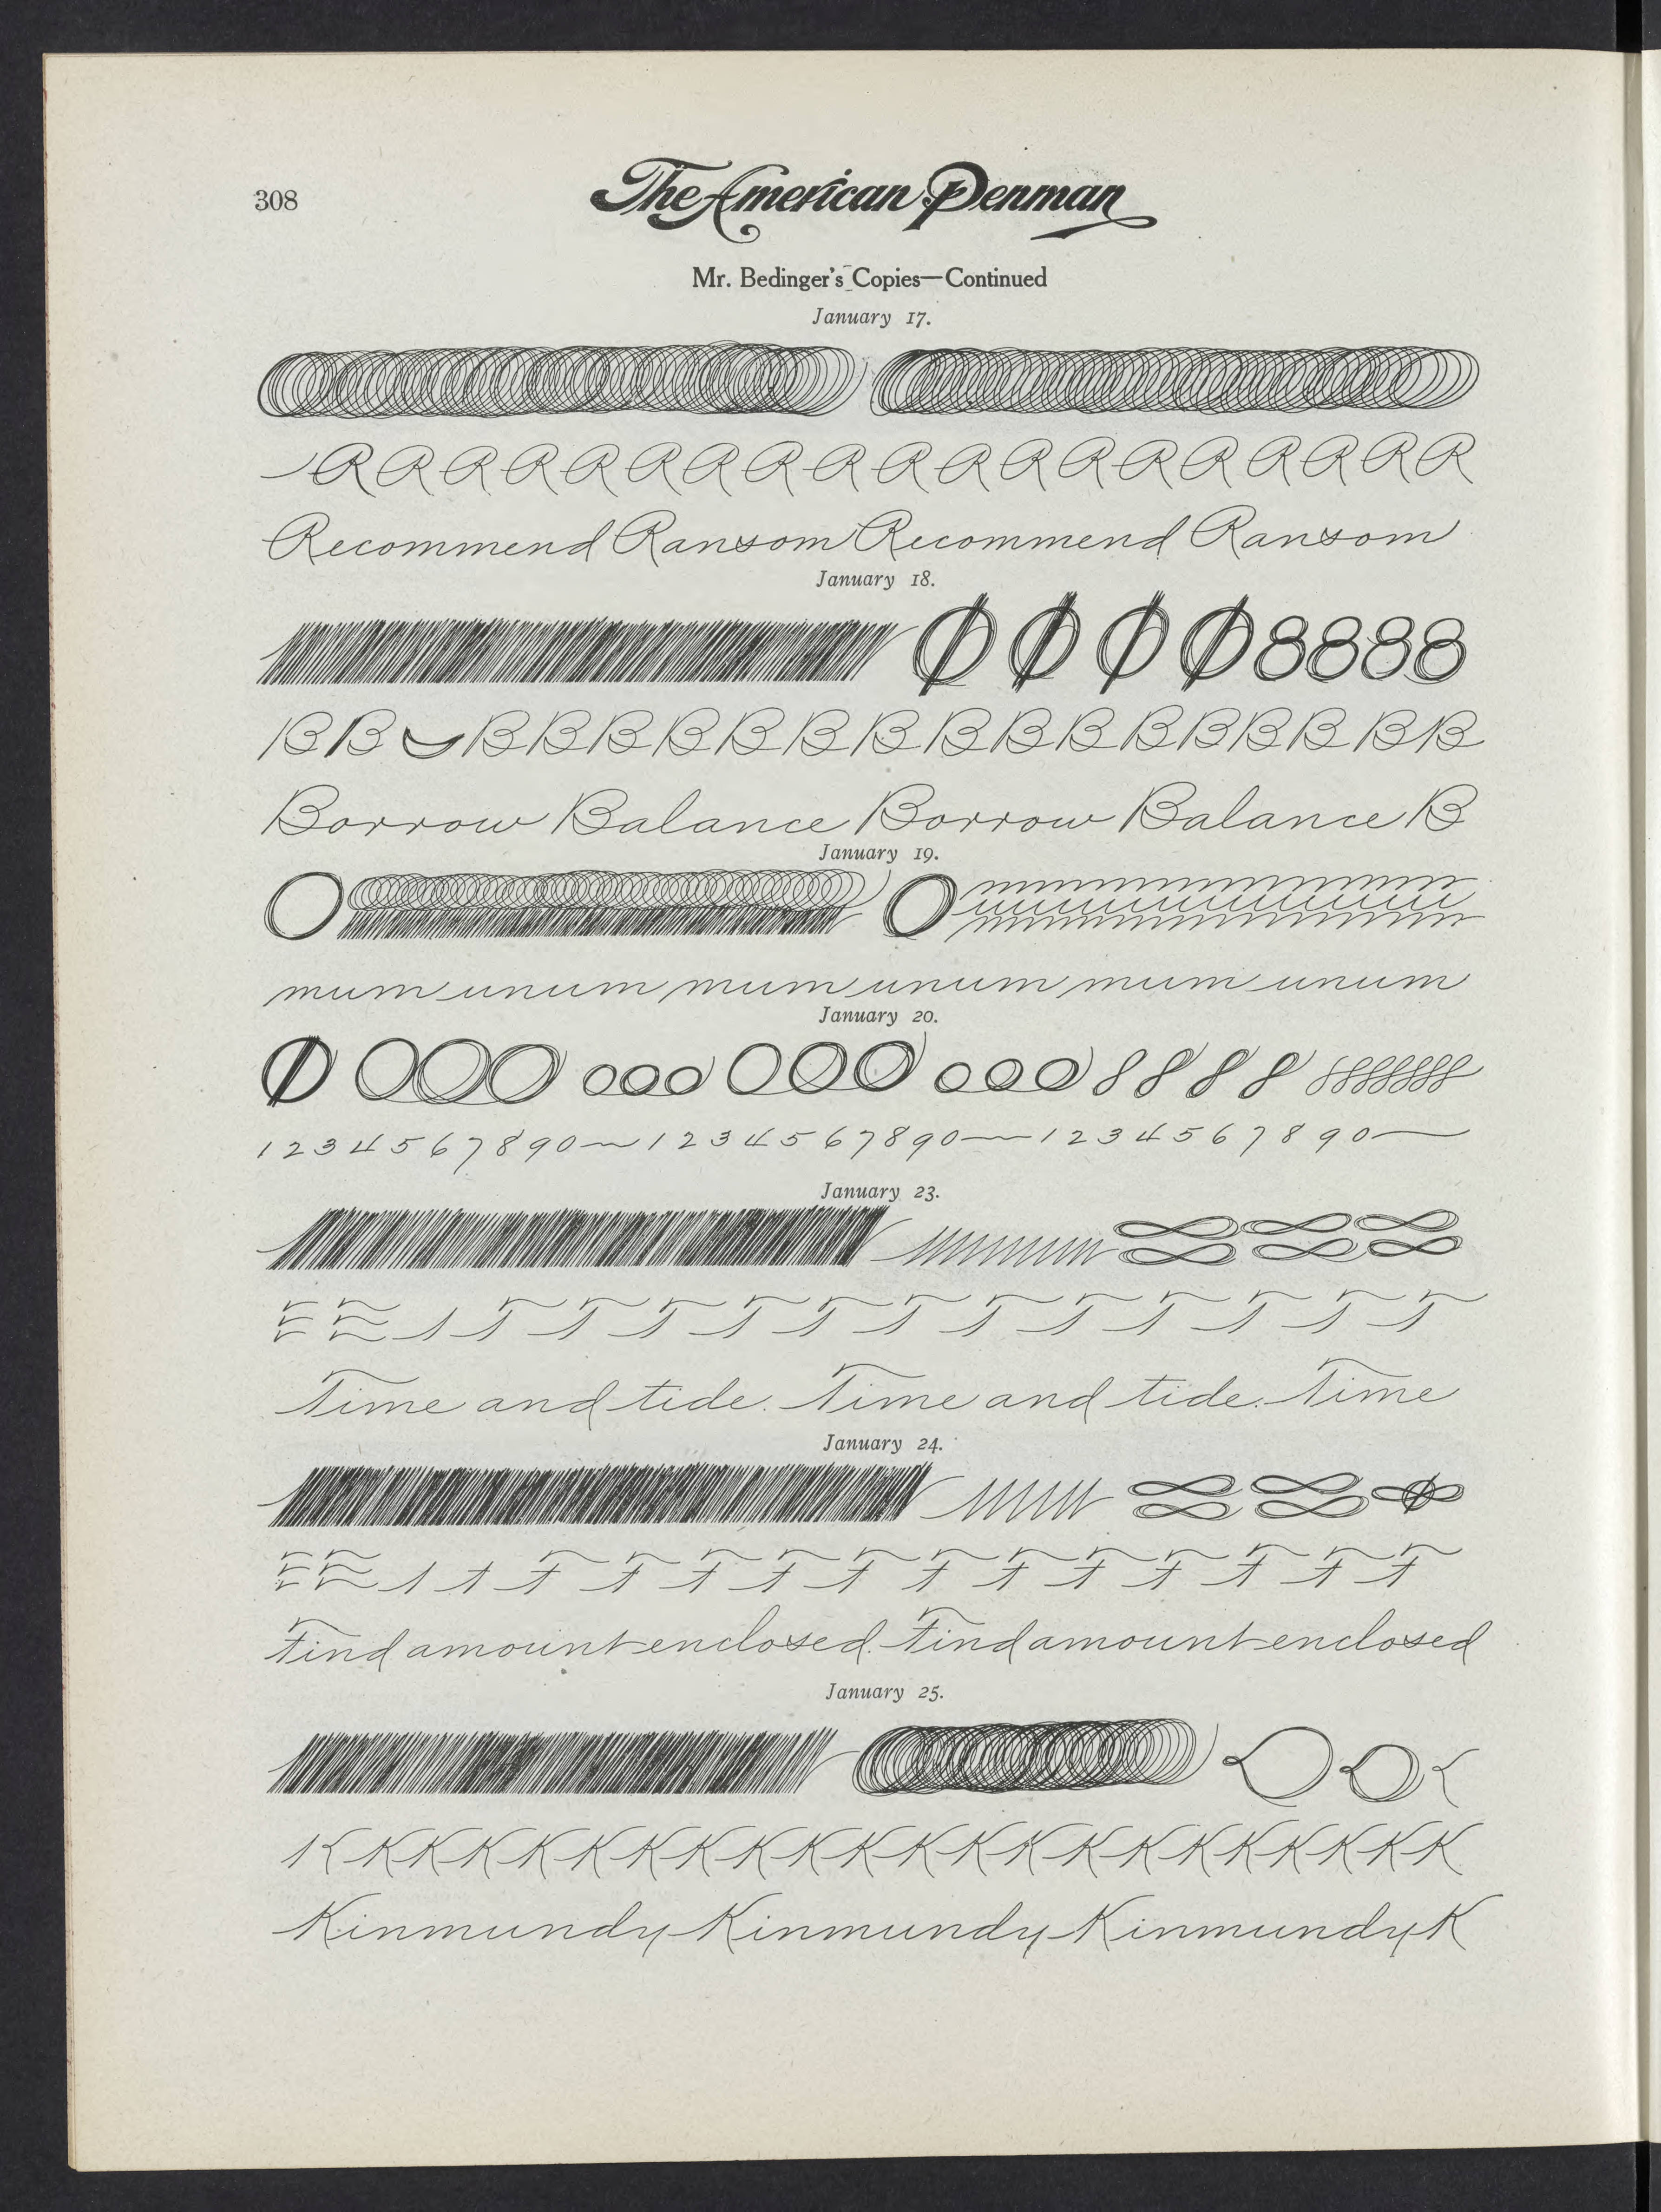 308
The American Penman
Mr. Bedinger's Copies—Continued
January 17.
R R R R R R R R R R R R R R R R R R R
Recommend Ransom Recommend Ransom
January 18.
8888
B B B B B B B B B B B B B B B B B B
Borrow Balance Borrow Balance B
January 19.
mum unum mum unum mum unum
January 20.
1 2 3 4 5 6 7 8 9 0 — 1 2 3 4 5 6 7 8 9 0 — 1 2 3 4 5 6 7 8 9 0 —
January 23.
T T T T T T T T T T T T
Time and tide. Time and tide. Time
January 24.
F F F F F F F F F F F F
Find amount enclosed. Find amount enclosed
January 25.
K K K K K K K K K K K K K K K K K K K K
Kinmundy Kinmundy Kinmundy K